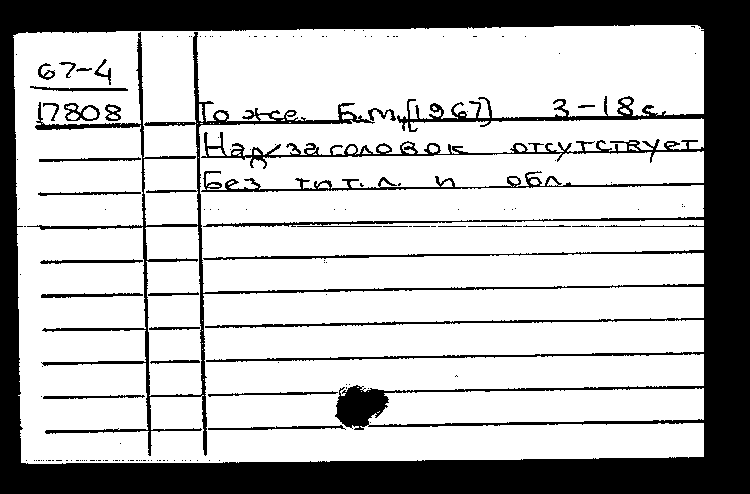 67-4
17808
То же. Б.м., [1967] 3-18 с.
Над/заголовок отсутствует.
Без тит. л. и обл.